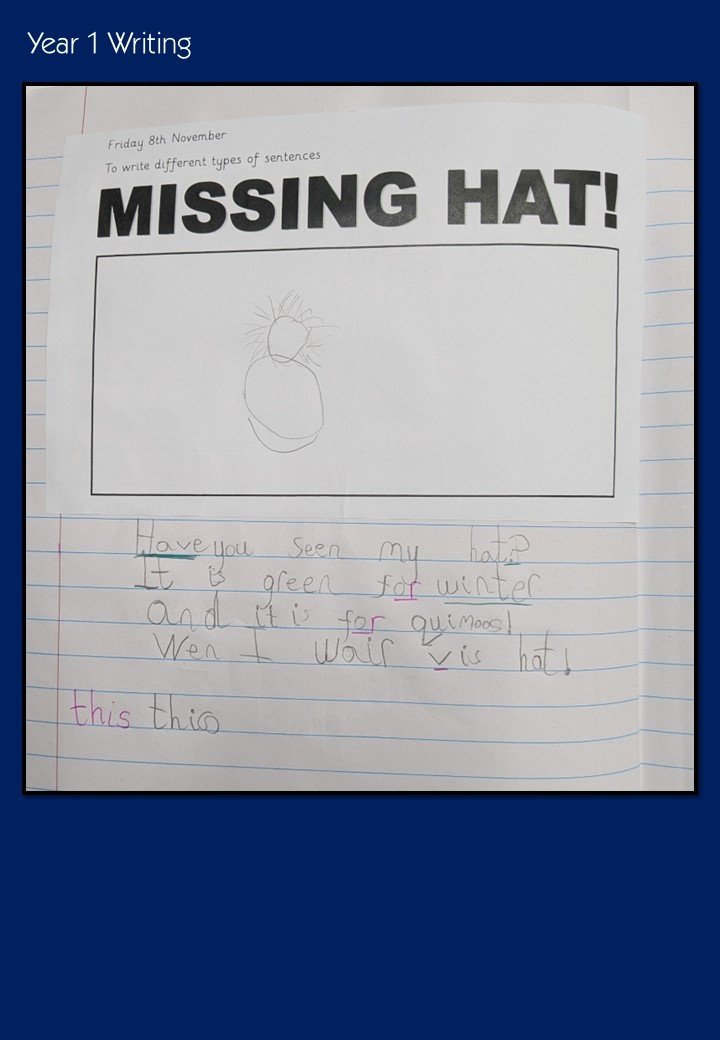 Year 1 Writing
Friday 8th November
To write different types of sentences
MISSING HAT!
Have you seen my hat?
It is green for winter
and it is for quimoos!
Wen I wair vis hat!
this this